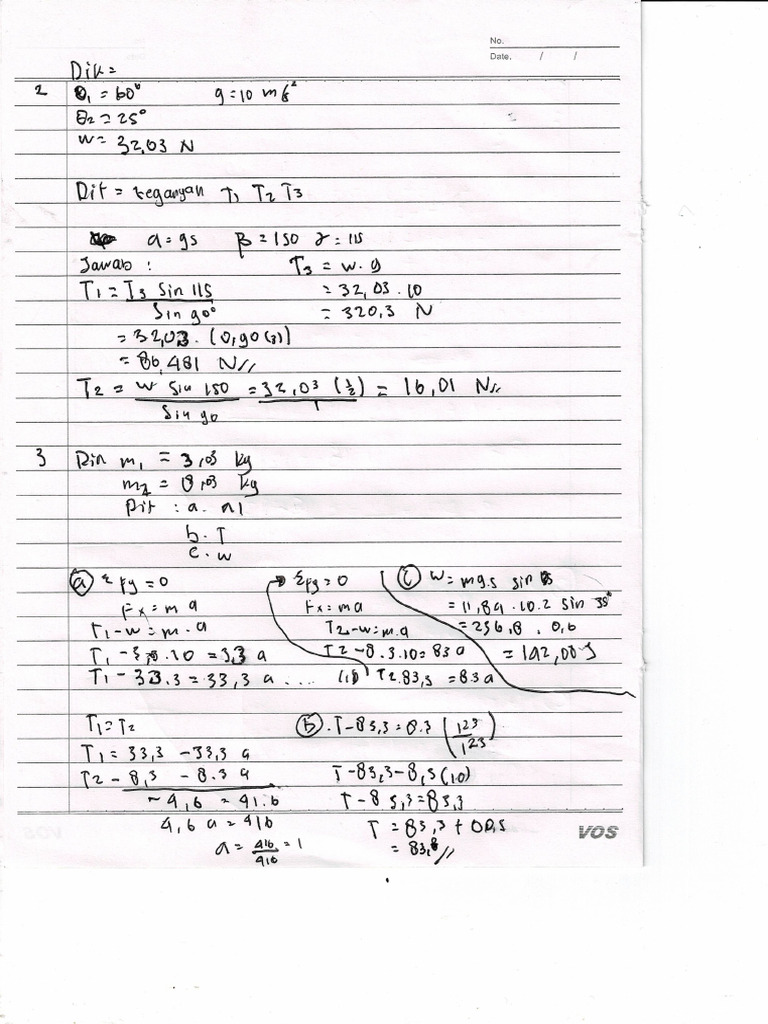 No.
Date. / /
Dik =
2 θ₁ = 60° g = 10 m/s²
θ₂ = 25°
W = 32,03 N
Dit = tegangan T₁ T₂ T₃
a = 95 β = 150 γ = 115
Jawab :
T₃ = w . g
T₁ = T₃ Sin 115
Sin 90°
= 32,03 . 10
= 320,3 N
= 32,03 .
= 86,481 N //
T₂ = W Sin 150 = 32,03 (1/2) = 16,01 N //
Sin 90 1
3 Din m₁ = 3,03 kg
m₂ = 8,03 kg
Dit : a.
b. T
c. w
(a) Σ Fy = 0
Fx = m a
T₁ - w = m . a
T₁ - 3,3 . 10 = 3,3 a
T₁ - 33.3 = 33,3 a ....
Σ Fy = 0
Fx = m a
T₂ - w = m . a
T₂ - 8.3.10 = 83 a
T₂ . 83,3 = 8.3 a
(c) W = m g . s sin
= 11,89 . 10.2 sin 35°
= 236,8 . 0,6
= 142,00 J
T₁ = T₂
T₁ = 33,3 - 33,3 a
T₂ - 8,3 - 8.3 a
- 4,6 = 41.6
4,6 a = 416
a = 416 = 1
416
(b) . T - 83,3 = 8.3 (123
123)
T - 83,3 - 8,3 (10)
T - 85,3 = 83,3
T = 83,3 +
= 83,8 //
VOS